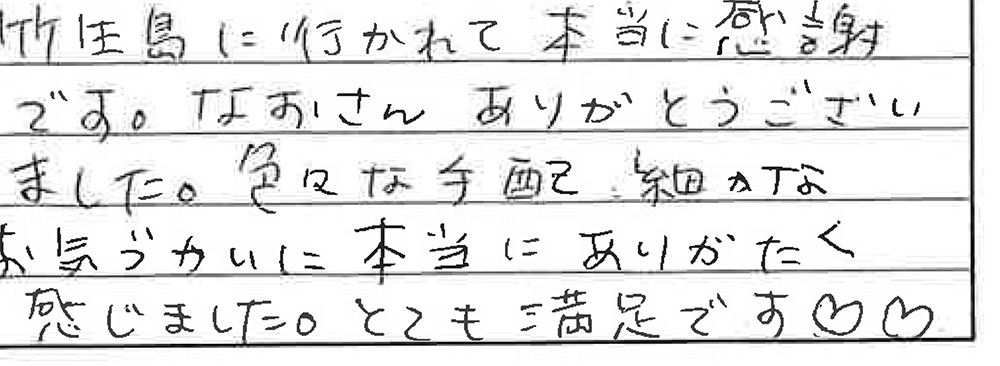 竹生島に行かれて 本当に感謝
です。なおさん ありがとうござい
ました。色々な手配 細かな
お気づかいに 本当に ありがたく
感じました。とても 満足です♡♡